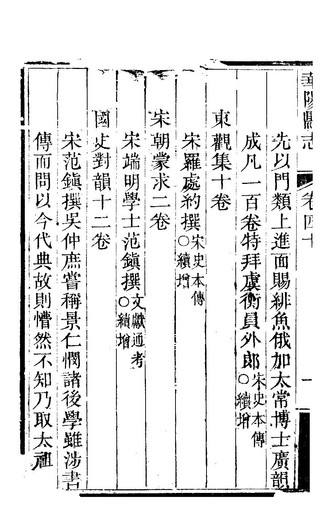 華陽縣志
卷四十
一
先以門類上進面賜緋魚俄加太常博士廣韻
成凡一百卷特拜虞衡員外郎〇宋史本傳續增
東觀集十卷
宋羅處約撰〇宋史本傳續增
宋朝蒙求二卷
宋端明學士范鎮撰〇文獻通考續增
國史對韻十二卷
宋范鎮撰吳仲庶嘗稱景仁憫諸後學雖涉書
傳而問以今代典故則懵然不知乃取太祖